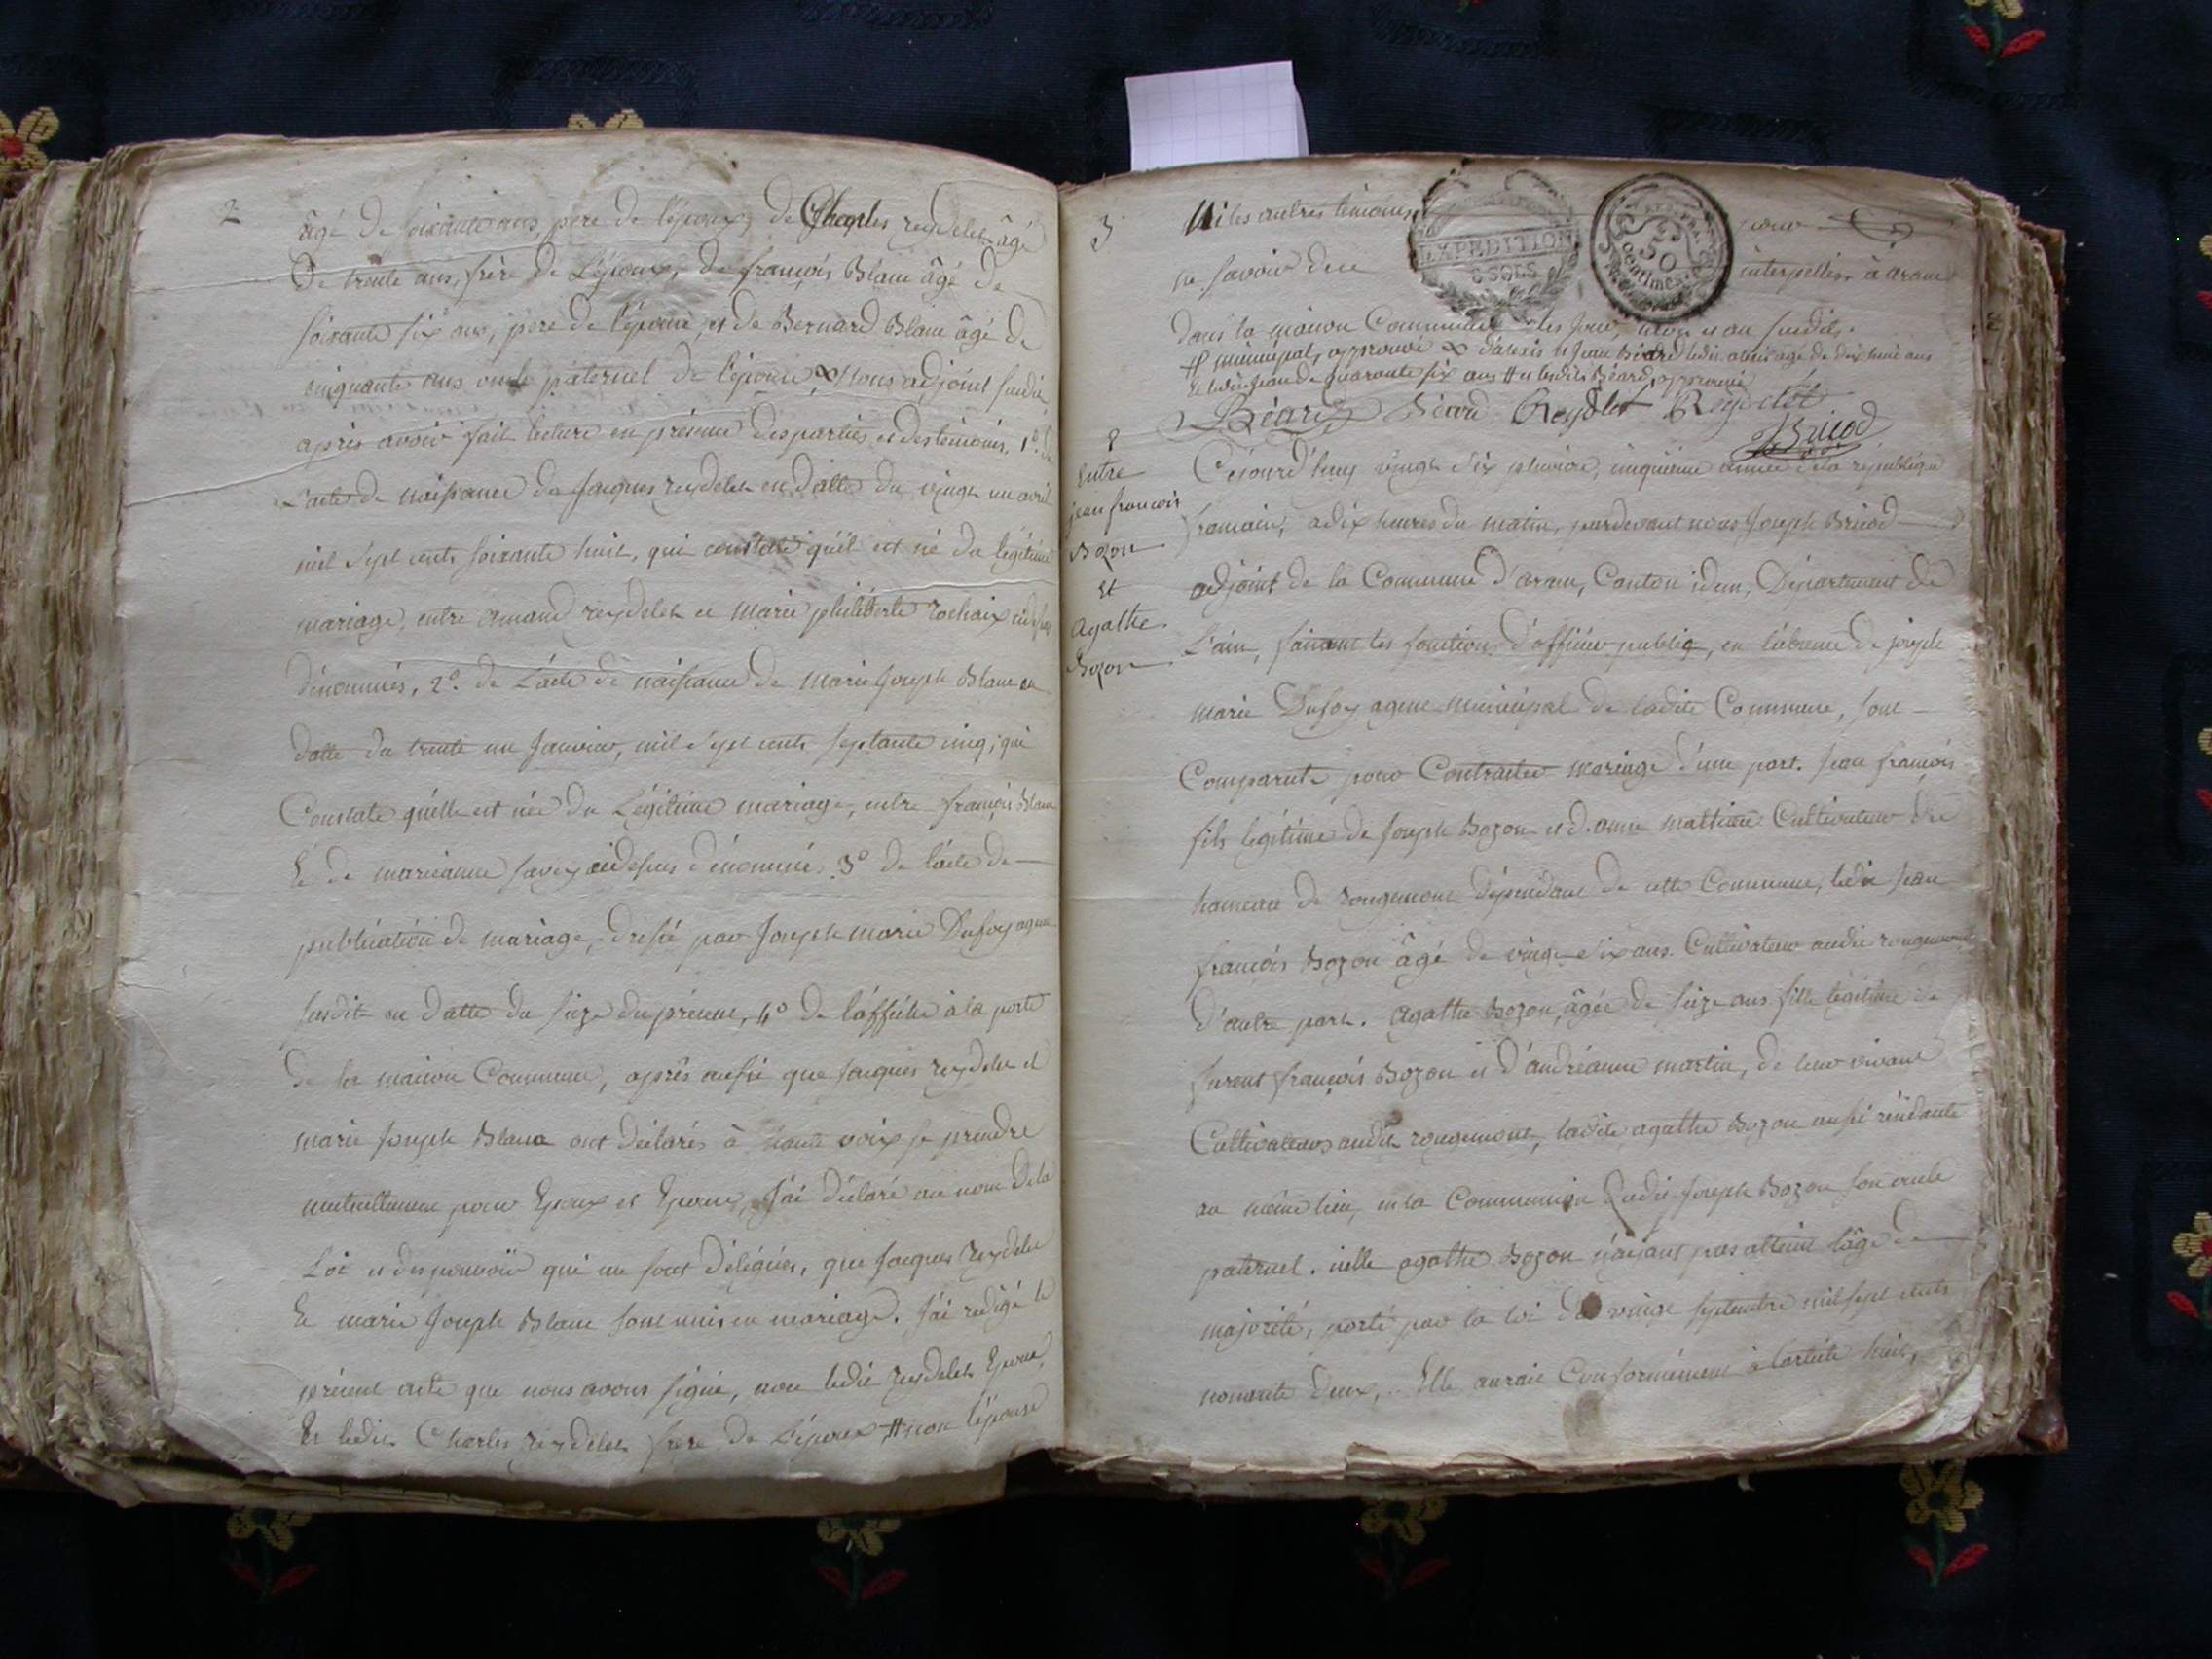 2
âgé de soixante ans, pere de l'époux, de Charles reydelet âgé
De trente ans, frère de L'époux, de françois Blanc âgé de
soixante six ans, pere de l'épouse, et de Bernard Blanc âgé de
cinquante ans oncle paternel de l'épouse, Nous adjoint susdit
après avoir fait lecture en présence des parties et des témoins, 1º. de
L'acte de naissance de Jacques reydelet en datte du vingt un avril
mil sept cents soixante huit, qui constate qu'il est né du légitime
mariage, entre amand reydelet et marie philiberte rochaix
dénommés, 2º. de L'acte de naissance de marie Joseph Blanc en
datte du trente un Janvier, mil sept cents septante cinq, qui
Constate qu'elle est née du Légitime mariage, entre françois Blanc
Et de marieanne savey cidessus dénommés. 3º de l'acte de
publication de mariage, dressé par Joseph marie Dufoy agent
susdit en datte du seize du présent, 4º de l'affiche à la porte
de la maison Commune, après aussi que Jacques reydelet et
marie Joseph Blanc ont déclarés à haute voix se prendre
mutuellement pour Epoux et Epouse, J'ai déclaré au nom de la
Loi et des pouvoir qui me sont délégués, que Jacques Reydelet
Et marie Joseph Blanc sont unis en mariage. J'ai redigé le
présent acte que nous avons signé, avec ledit reydelet Epoux,
Et ledit Charles reydelet frere de L'époux # non l'épouse
3
Ni les autres témoins, pour
EXPEDITION
8 SOLS
50
centimes
ne savoir de ce interpellés, à aranc
Dans la maison Commune les Jour, mois et an susdits.
municipal, approuvé Jean Béard ledit âgé de dix huit ans
Et ledit Jean de quarante six ans # et lesdits Béard, approuvé
Béard Béard Reydelet Reydelet
Bricod
8
Entre
jean francois
Bozon
Et
Agathe
Bozon
Cejourd'huy vingt six pluviose, cinquième année de la république
francaise, a dix heures du matin, pardevant nous Joseph Bricod
adjoint de la Commune d'aranc, Canton idem, Département de
L'ain, faisant les fonctions d'officier public, en l'absence de joseph
marie Dufoy agent municipal de ladite Commune, sont
Comparut pour Contracter mariage d'une part. Jean françois
fils légitime de Joseph Bozon et d'anne mathieu Cultivateur du
hameau de rougemont dépendant de cette Commune, ledit Jean
françois Bozon âgé de vingt six ans. Cultivateur audit rougemont
d'autre part. Agathe Bozon, âgée de seize ans fille légitime de
furent françois Bozon et d'andréanne martin, de leur vivant
Cultivateurs audit rougemont, ladite agathe Bozon aussi résidante
au même lieu, en la Communion dudit Joseph Bozon son oncle
paternel. icelle agathe Bozon n'ayant pas atteint l'âge de
majorité, porté par la loi du vingt septembre mil sept cents
nonante deux, Elle auroit Conformément à l'article huit,